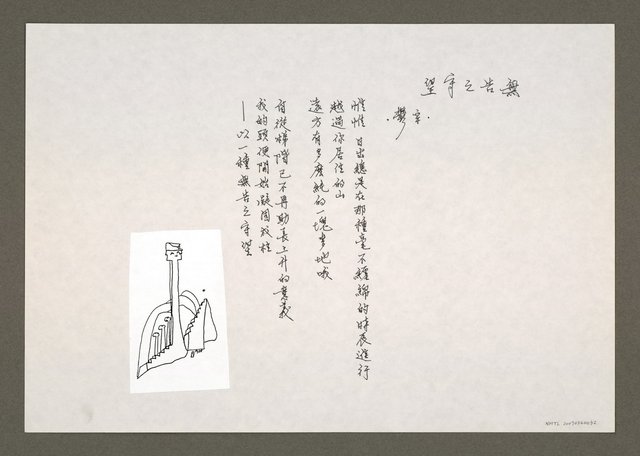 無告之守望
惟惟日出總是在那種毫不纏綿的時辰進行
越過你居住的山
遠方有多磨純的一塊高地哦
自從樓階已不再助長上升的意義
我的頸便開始凝固成柱
—以一種無告之守望
NMTL 20070960032